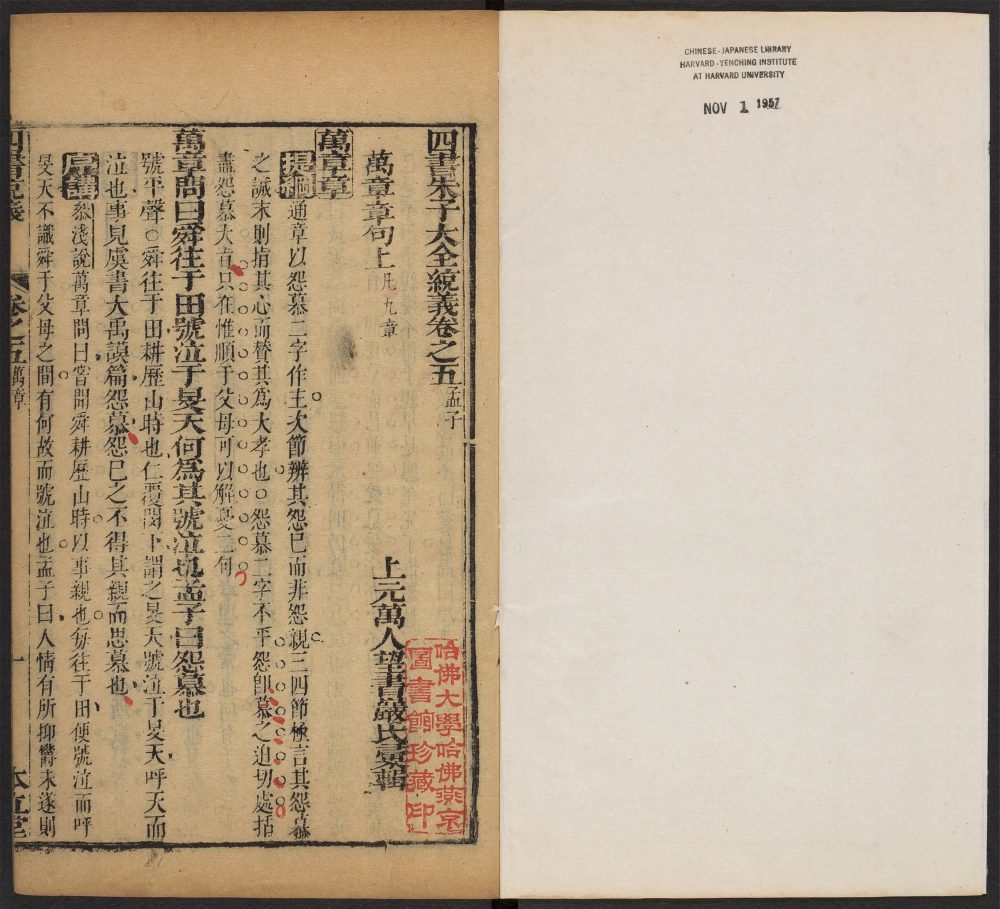 CHINESE-JAPANESE LIBRARY
HARVARD-YENCHING INSTITUTE
AT HARVARD UNIVERSITY
NOV 1 1957
四書朱子大全統義卷之五 孟子
上元萬人望書巖氏彙輯
哈佛大學哈佛燕京
圖書館珍藏印
萬章章句上 凡九章
萬章章
提綱 通章以怨慕二字作主次節辨其怨已而非怨親三四節極言其怨慕
之誠末則揣其心而贊其為大孝也怨慕二字不平怨卽慕之迫切處括
盡怨慕大旨只在惟順于父母可以解憂一句
萬章問曰舜往于田號泣于旻天何為其號泣也孟子曰怨慕也
號平聲○舜往于田耕歷山時也仁覆閔下謂之旻天號泣于旻天呼天而
泣也事見虞書大禹謨篇怨慕怨已之不得其親而思慕也
講 叅淺說萬章問曰嘗聞舜耕歷山時以事親也每往于田便號泣而呼
旻天不識舜于父母之間有何故而號泣也孟子曰人情有所抑鬱未遂則
卷之五 萬章
一